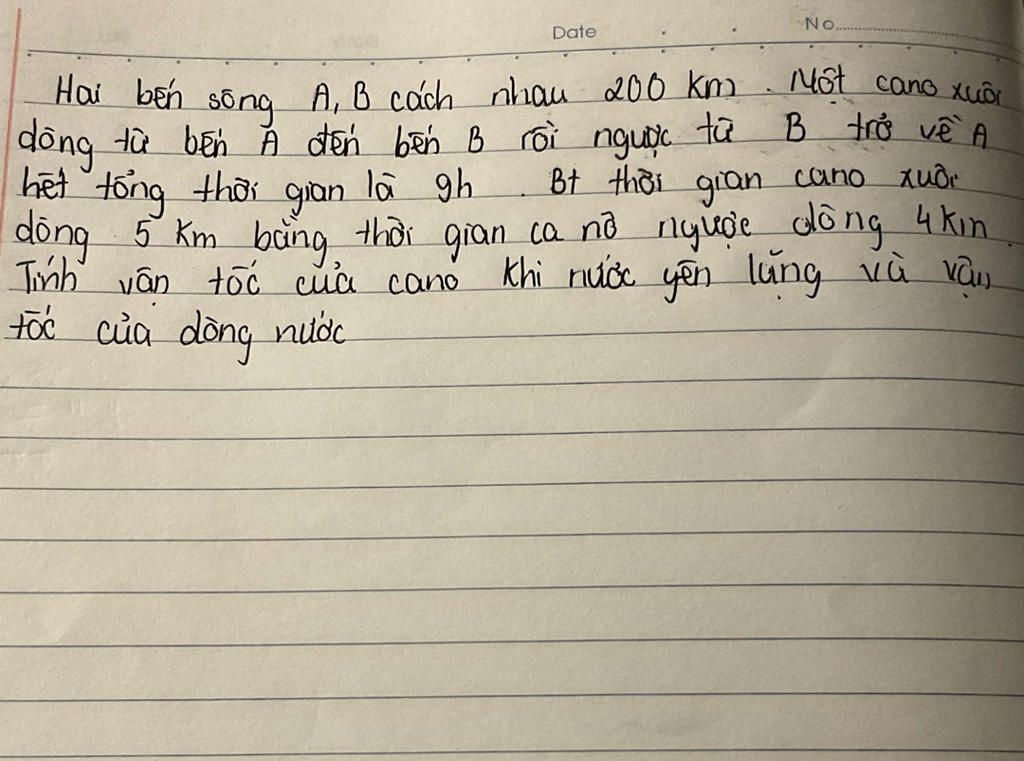 Date No
Hai bến sông A, B cách nhau 200 km. Một cano xuôi
dòng từ bến A đến bến B rồi ngược từ B trở về A
hết tổng thời gian là 9h. Bt thời gian cano xuôi
dòng 5 km bằng thời gian ca nô ngược dòng 4km.
Tính vận tốc của cano khi nước yên lặng và vận
tốc của dòng nước